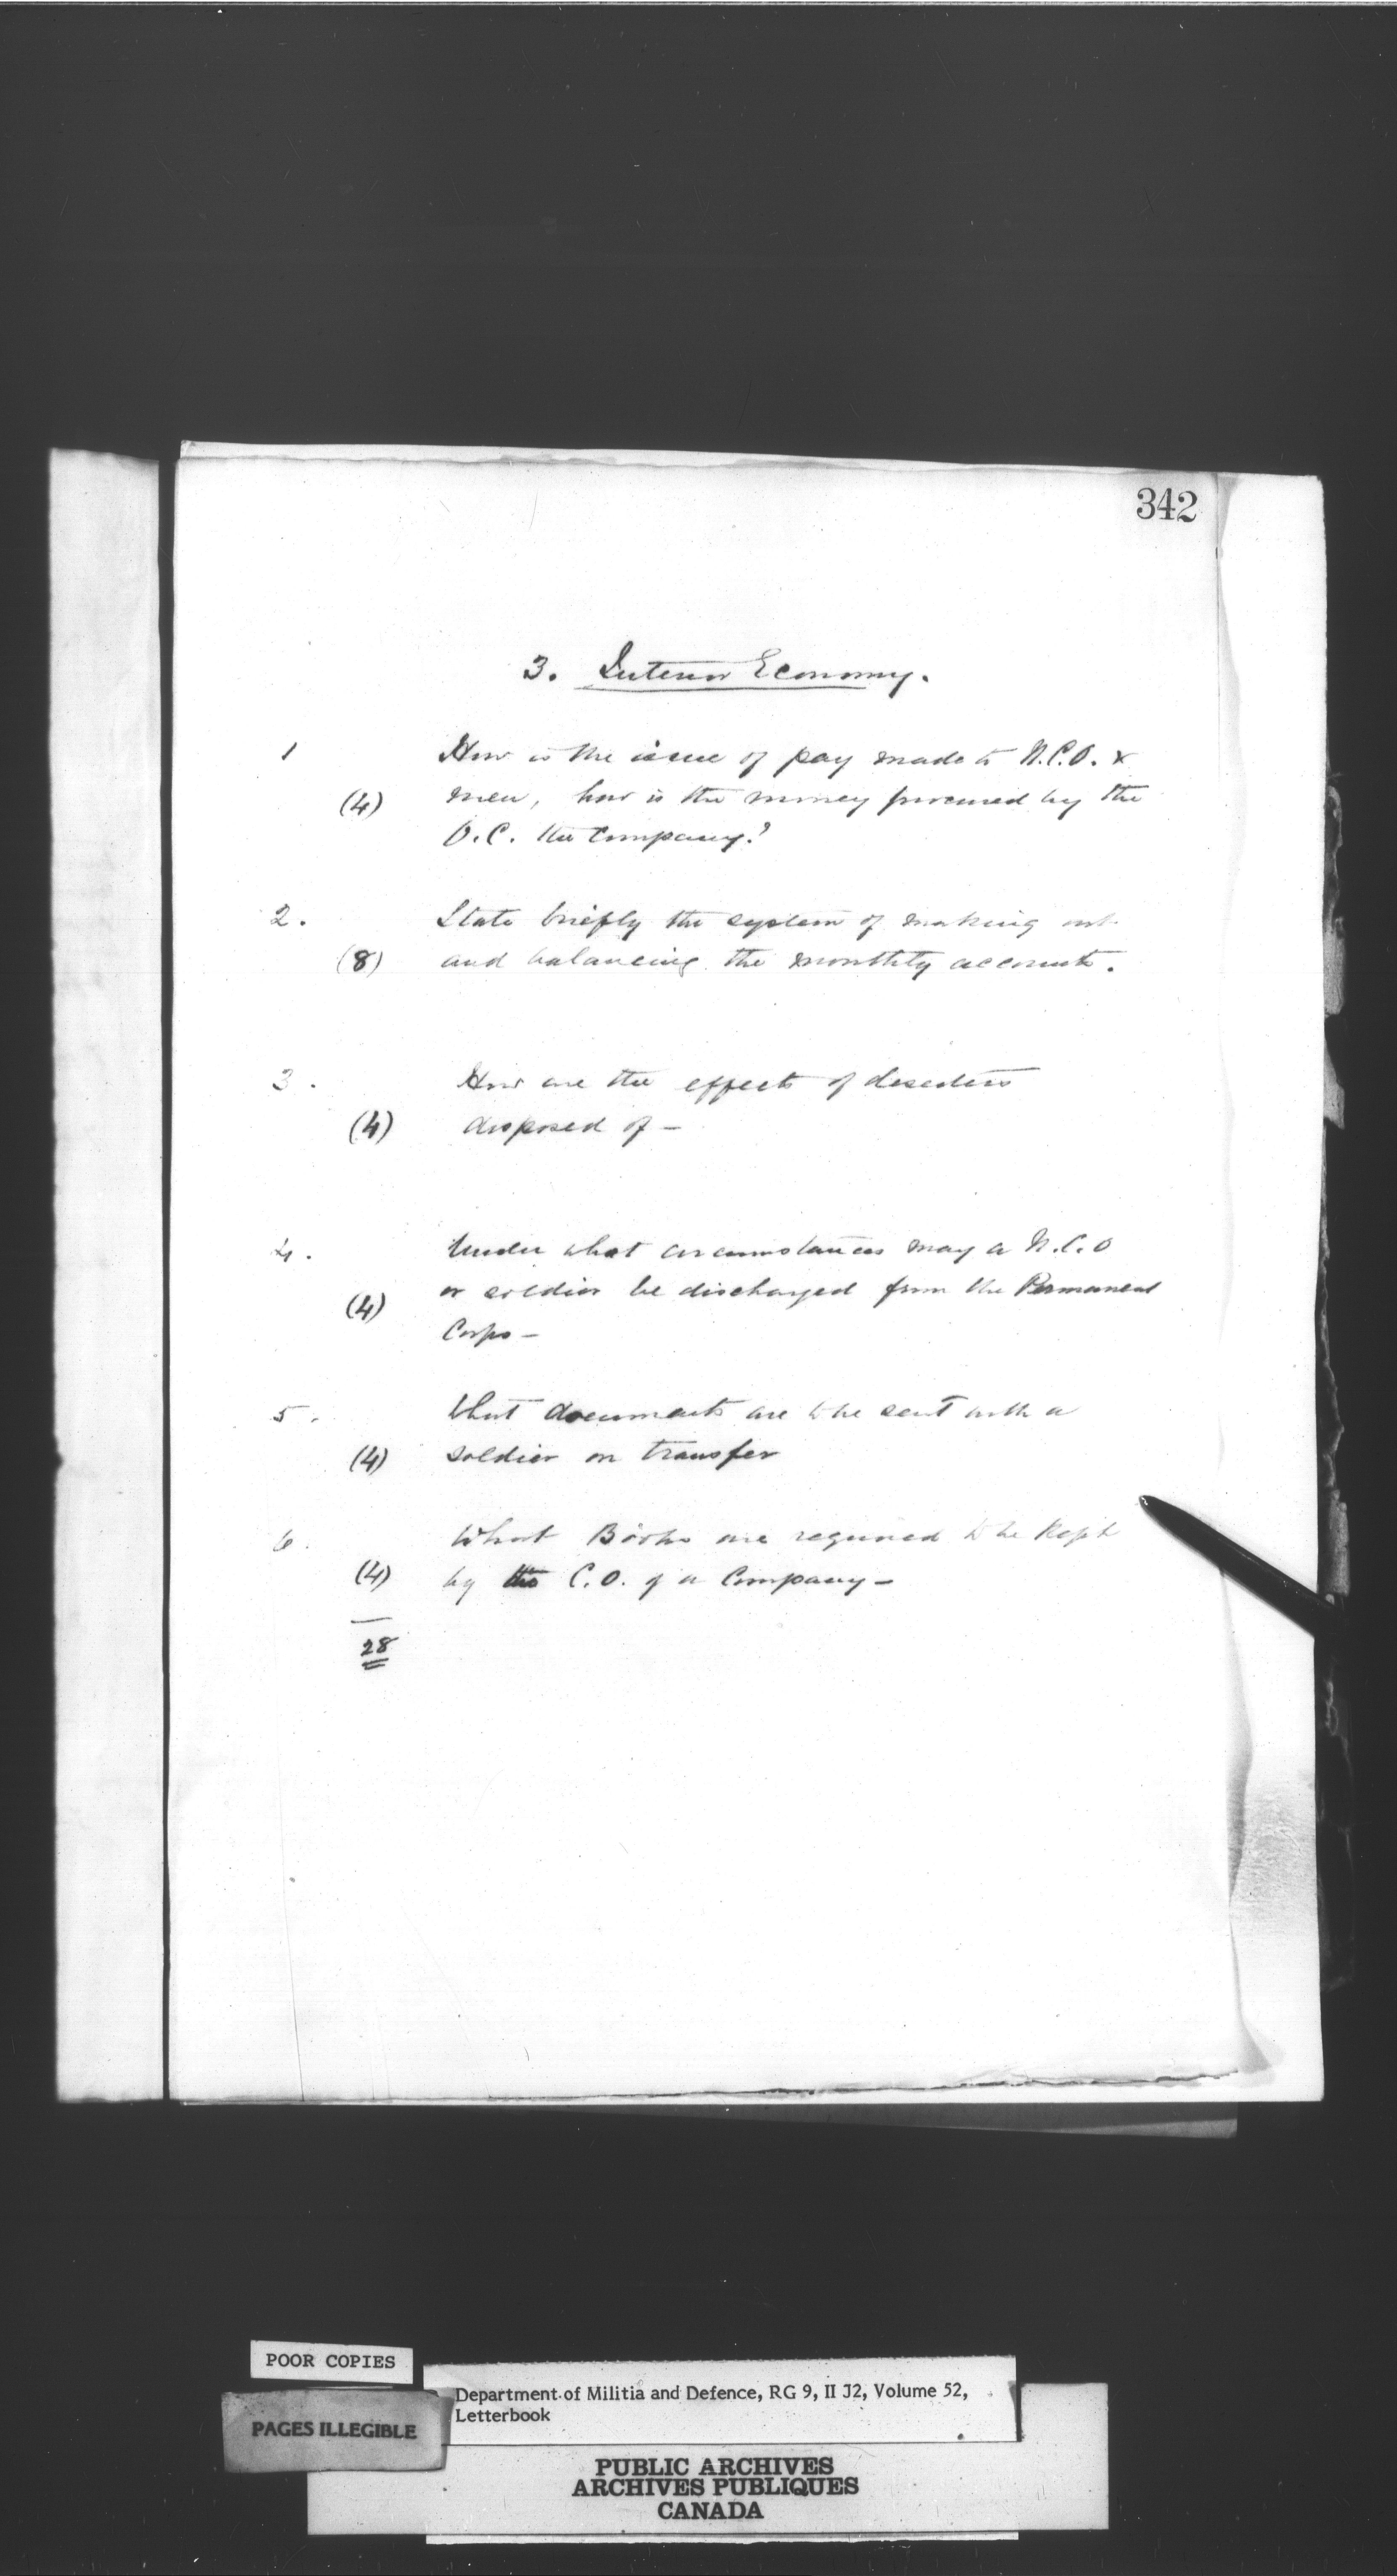 342
3. Interior Economy.
1 How is the issue of pay made to N.C.O. &
(4) men, how is the money procured by the
O.C. the Company?
2. State briefly the system of making out
(8) and balancing the monthly accounts.
3. How are the effects of deserters
(4) disposed of -
4. Under what circumstances may a N.C.O
(4) or soldier be discharged from the Permanent
Corps -
5. What documents are to be sent with a
(4) soldier on transfer
6. What Books are required to be kept
(4) by the C.O. of a Company -
28
POOR COPIES
PAGES ILLEGIBLE
Department of Militia and Defence, RG 9, II J2, Volume 52,
Letterbook
PUBLIC ARCHIVES
ARCHIVES PUBLIQUES
CANADA